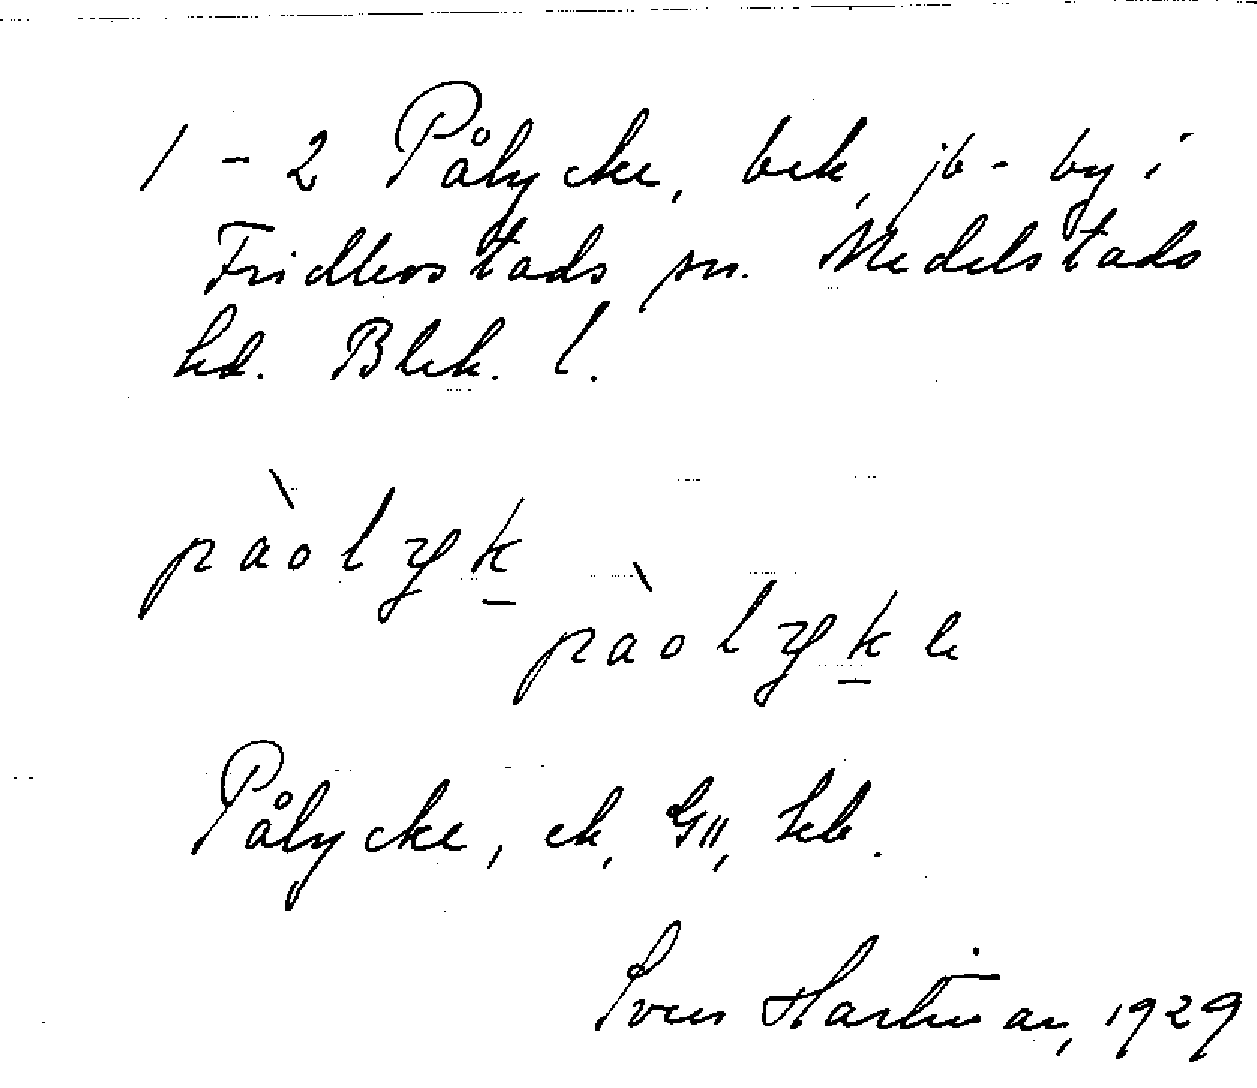 1-2 Pålycke, bek, jb-by i
Fridlevstads sn. Medelstads
hd. Blek. l.
pàolyk
pàolyke
Pålycke, ek, GII, hb.
Sven Hartman, 1929